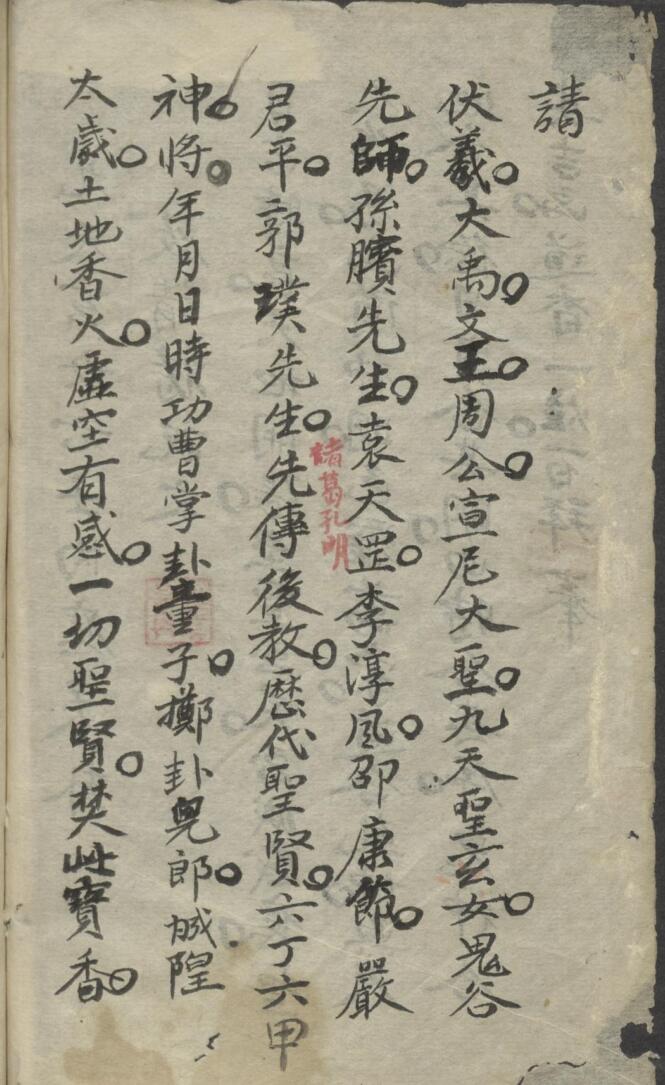 請
伏羲。大禹。文王。周公。宣尼大聖。九天聖玄女。鬼谷
先師。孫臏先生。袁天罡。李淳風。邵康節。嚴
諸葛孔明
君平。郭璞先生。先傳後教。歷代聖賢。六丁六甲
神。将。年月日時功曹掌卦童子。擲卦兒郎。城隍
太歲。土地香火。虛空有感。一切聖賢。焚此寳香。